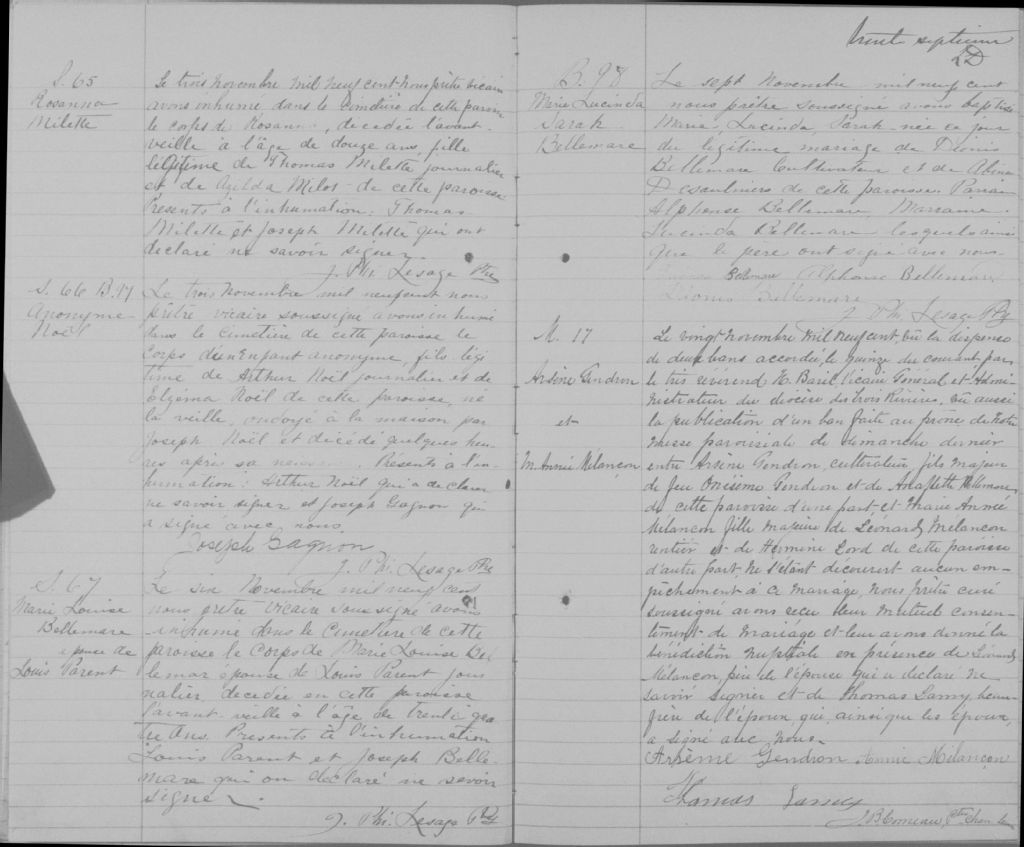 S. 65
Rosanna
Milette
Le trois novembre mil neuf cent nous prêtre vicaire
avons inhumé dans le Cimetière de cette paroisse
le corps de Rosanna, décedée l'avant-
veille à l'âge de douze ans, fille
légitime de Thomas Milette journalier
et de Azilda Milot de cette paroisse.
Présents à l'inhumation: Thomas
Milette et Joseph Milette qui ont
declaré ne savoir signer.
J. Phi. Lesage Ptre
S. 66 B. 97
Anonyme
Noël
Le trois novembre mil neufcent nous
prêtre vicaire soussigné avons inhumé
dans le Cimetière de cette paroisse le
Corps d'un Enfant anonyme, fils légi
time de Arthur Noël journalier et de
Noël de cette paroisse, né
la veille, ondoyé à la maison par
Joseph Noël et décédé quelques heu-
res après sa naissance. Présents à l'in-
humation: Arthur Noël qui a declarer
ne savoir signer et Joseph Gagnon qui
a signé avec nous
Joseph Gagnon
J. Phi. Lesage Ptre
S. 67
Marie Louise
Bellemare
épouse de
Louis Parent
Le six Novembre mil neuf cent
nous prêtre vicaire soussigné avons
inhumé dans le Cimetière de cette
paroisse le Corps de Marie Louise Bel
lemar épouse de Louis Parent jour
nalier, decedée en cette paroisse
l'avant-veille à l'âge de trente qua
tre ans. Presents à l'inhumation
Louis Parent et Joseph Belle-
mare qui on déclaré ne savoir
signer.
J. Phi. Lesage Ptre
vingt septième
B. 98
Marie Lucinda
Sarah
Bellemare
Le sept Novembre mil neuf cent
nous prêtre soussigné avons baptisé
Marie, Lucinda, Sarah née ce jour
du légitime mariage de Dionis
Bellemare Cultivateur et de Albina
Desaulniers de cette paroisse. Parrain
Alphonse Bellemare, Marraine
Lucinda Bellemare lesquels ainsi
que le père ont signé avec nous.
Bellemare Alphonse Bellemare
Dionis Bellemare
J. Phi. Lesage Ptre
M. 17
Arsène Gendron
et
M. Année Mélançon
Le vingt novembre mil neuf cent, vû la dispense
de deux bans accordée, le quinze du courant par
le très révérend H. Baril, Vicaire Général et Admi-
nistrateur du diocèse des Trois Rivières, vû aussi
la publication d'un ban faite au prône de notre
Messe paroissiale de dimanche dernier
entre Arsène Gendron, cultivateur, fils majeur
de feu Onésime Gendron et de Bellemare
de cette paroisse d'une part, et Marie Année
Mélançon fille majeure de Léonard Mélançon
rentier et de Hermine Lord de cette paroisse
d'autre part, ne s'étant découvert aucun em-
pêchement à ce mariage, nous Prêtre curé
soussigné avons reçu leur mutuel consen-
tement de mariage et leur avons donné la
bénédiction nuptiale en présence de Léonard
Mélançon, père de l'épouse qui a déclaré ne
savoir signer et de Thomas Lamy, beau-
frère de l'époux, qui, ainsi que les époux,
a signé avec nous.
Arsème Gendron Annie Mélançon
Thomas Lamy
J. B. Comeau, Ptre